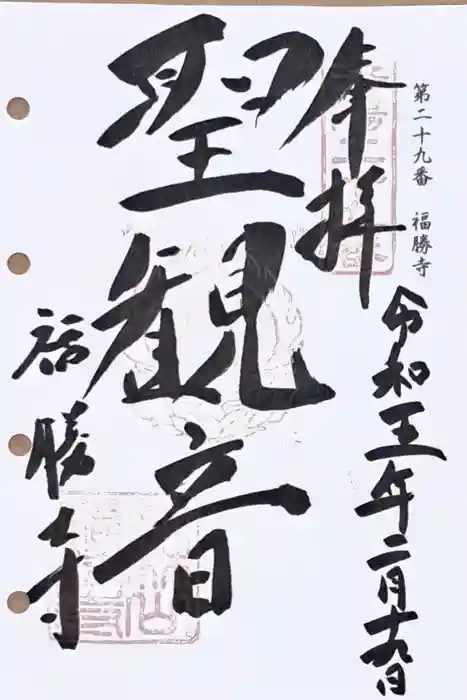 第二十九番 福勝寺
奉拝
令和五年二月十九日
聖観音
福勝寺